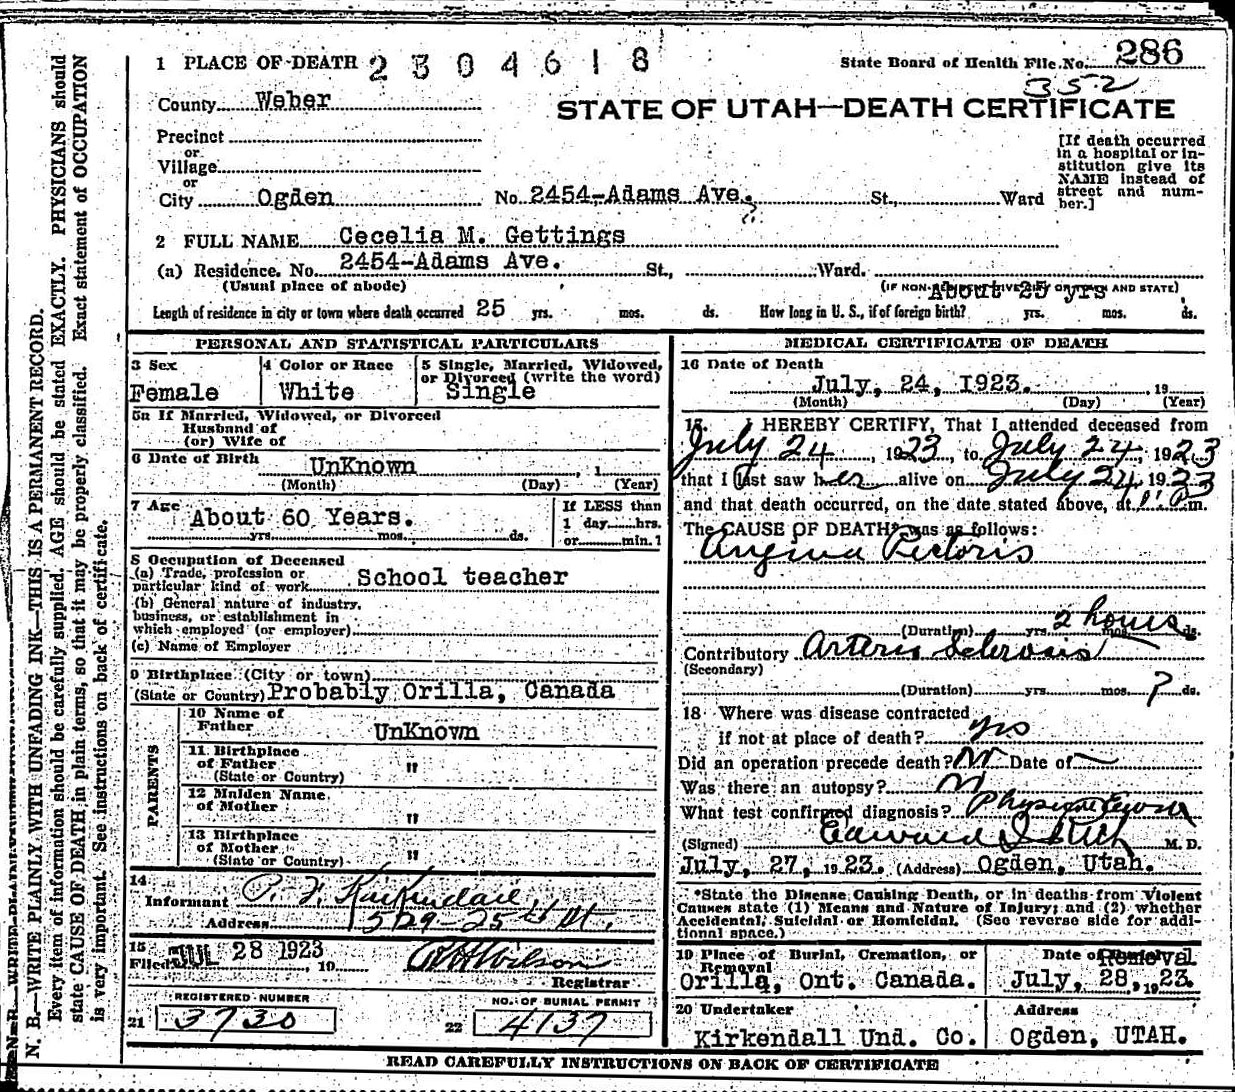 1 PLACE OF DEATH 2304618
State Board of Health File No. 286
352
County Weber
STATE OF UTAH—DEATH CERTIFICATE
Precinct
or
Village
or
City Ogden No. 2454-Adams Ave. St., Ward
[If death occurred in a hospital or institution give its NAME instead of street and number.]
2 FULL NAME Cecelia M. Gettings
(a) Residence. No. 2454-Adams Ave. St., Ward.
(Usual place of abode) (IF NON- AND STATE)
About 25 yrs
Length of residence in city or town where death occurred 25 yrs. mos. ds. How long in U. S., if of foreign birth? yrs. mos. ds.
PERSONAL AND STATISTICAL PARTICULARS
3 Sex
Female
4 Color or Race
White
5 Single, Married, Widowed, or Divorced (write the word)
Single
5a If Married, Widowed, or Divorced
Husband of
(or) Wife of
6 Date of Birth UnKnown , 1
(Month) (Day) (Year)
7 Age About 60 Years.
yrs. mos. ds.
If LESS than
1 day hrs.
or min.?
8 Occupation of Deceased
(a) Trade, profession or
particular kind of work School teacher
(b) General nature of industry,
business, or establishment in
which employed (or employer)
(c) Name of Employer
9 Birthplace (City or town)
(State or Country) Probably Orilla, Canada
PARENTS
10 Name of
Father UnKnown
11 Birthplace
of Father "
(State or Country)
12 Maiden Name
of Mother "
13 Birthplace
of Mother "
(State or Country)
14
Informant
Address 529-25th St.
15
Filed JUL 28 1923 , 19
Registrar
REGISTERED NUMBER
21 3730
NO. OF BURIAL PERMIT
22 4137
MEDICAL CERTIFICATE OF DEATH
16 Date of Death
July, 24, 1923. 19
(Month) (Day) (Year)
17. I HEREBY CERTIFY, That I attended deceased from
July 24, 1923, to July 24, 1923
that I last saw her alive on July 24, 1923
and that death occurred, on the date stated above, at m.
The CAUSE OF DEATH* was as follows:
Angina Pectoris
2 hours
(Duration) yrs. mos. ds.
Contributory Arterio Sclerosis
(Secondary)
(Duration) yrs. mos. ? ds.
18 Where was disease contracted
if not at place of death? yes
Did an operation precede death? No Date of —
Was there an autopsy? No
What test confirmed diagnosis?
(Signed) Edward M. D.
July, 27, 1923. (Address) Ogden, Utah.
*State the Disease Causing Death, or in deaths from Violent
Causes state (1) Means and Nature of Injury; and (2) whether
Accidental, Suicidal or Homicidal. (See reverse side for addi-
tional space.)
19 Place of Burial, Cremation, or
Removal
Orilla, Ont. Canada.
Date of Removal
July, 28, 1923.
20 Undertaker
Kirkendall Und. Co.
Address
Ogden, UTAH.
READ CAREFULLY INSTRUCTIONS ON BACK OF CERTIFICATE
N. B.—WRITE PLAINLY WITH UNFADING INK—THIS IS A PERMANENT RECORD.
Every item of information should be carefully supplied. AGE should be stated EXACTLY. PHYSICIANS should
state CAUSE OF DEATH in plain terms, so that it may be properly classified. Exact statement of OCCUPATION
is very important. See instructions on back of certificate.